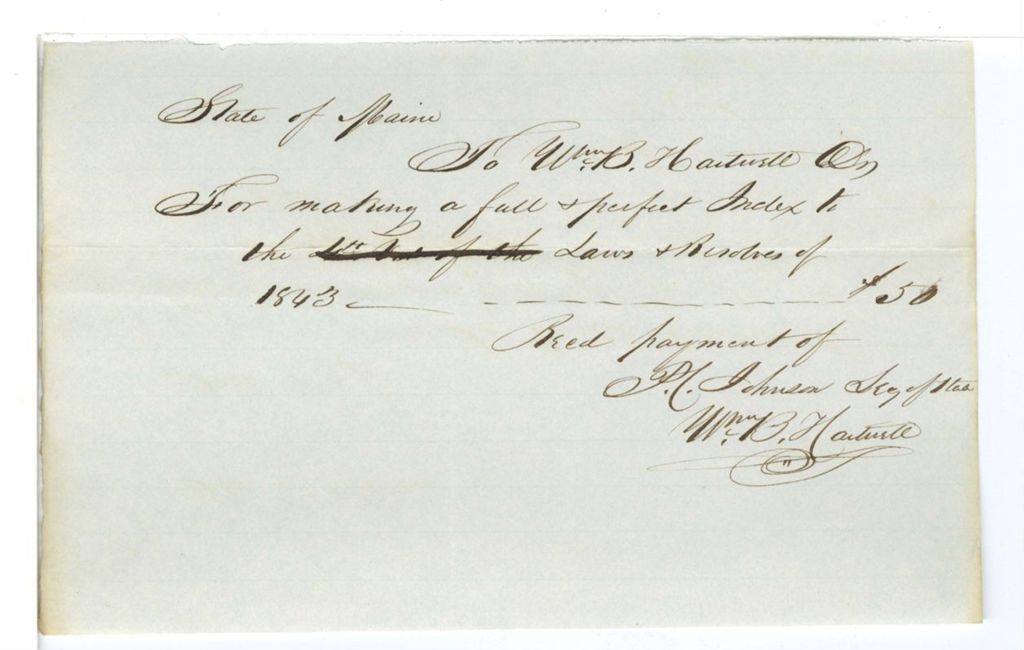 State of Maine
To Wm. B. Hartwell Dr
For making a full & perfect Index to
the of the Laws & Resolves of
1843 — - - - - - - - - - - $50
Recd payment of
P. C. Johnson Secy of State
Wm. B. Hartwell